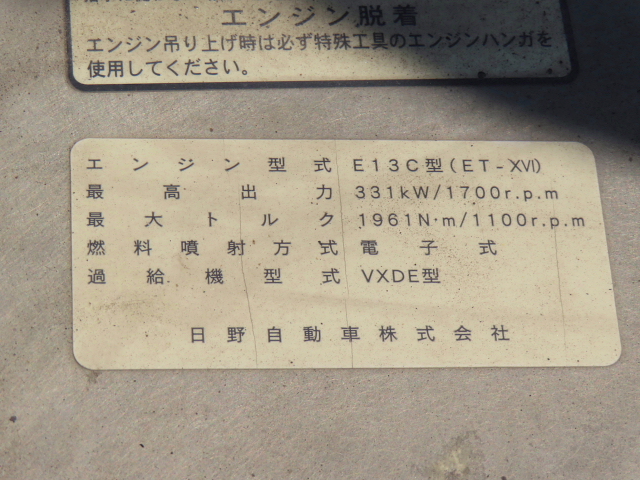 エンジン脱着
エンジン吊り上げ時は必ず特殊工具のエンジンハンガを
使用してください。
エンジン型式 E13C型(ET-XVI)
最高出力 331kW/1700r.p.m
最大トルク 1961N·m/1100r.p.m
燃料噴射方式 電子式
過給機型式 VXDE型
日野自動車株式会社